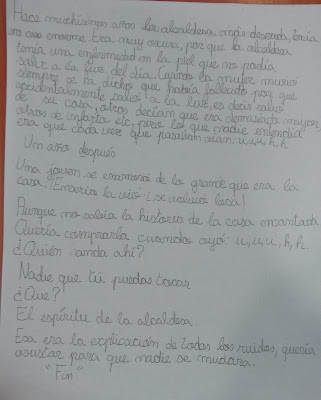 Hace muchísimos años la alcaldesa más deseada, tenía
una casa enorme. Era muy oscura, por que la alcaldesa
tenía una enfermedad en la piel que no podía
salir a la luz del día. Cuando la mujer murió
siempre se ha dicho que habría fallecido por que
accidentalmente salió a la luz, es decir salió
de su casa, otros decían que era demasiado mayor
otros de infarto etc, pero lo que nadie entendía
era que cada vez que pasaban oían: u, u, u, h, h.
Un año después
Una joven se enamoró de lo grande que era la
casa. ¡Enseria la vivó ¿ se volvió loca!
Aunque no sabía la historia de la casa encantada
Quería comprarla cuando oyó: u, u, u, h, h.
¿Quién anda ahí?
Nadie que tú puedas tocar
¿Que?
El espíritu de la alcaldesa.
Esa era la explicación de todos los ruidos, quería
asustar para que nadie se mudara.
"Fin"